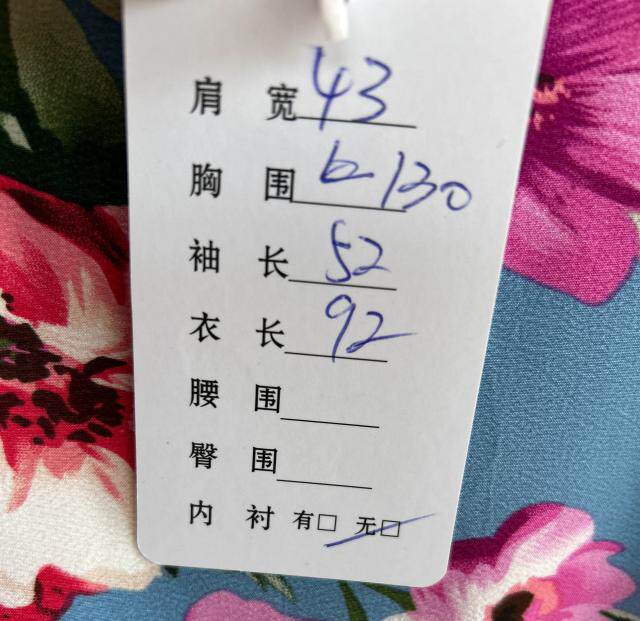 肩 宽 43
胸 围 130
袖 长 52
衣 长 92
腰 围
臀 围
内 衬 有□ 无□